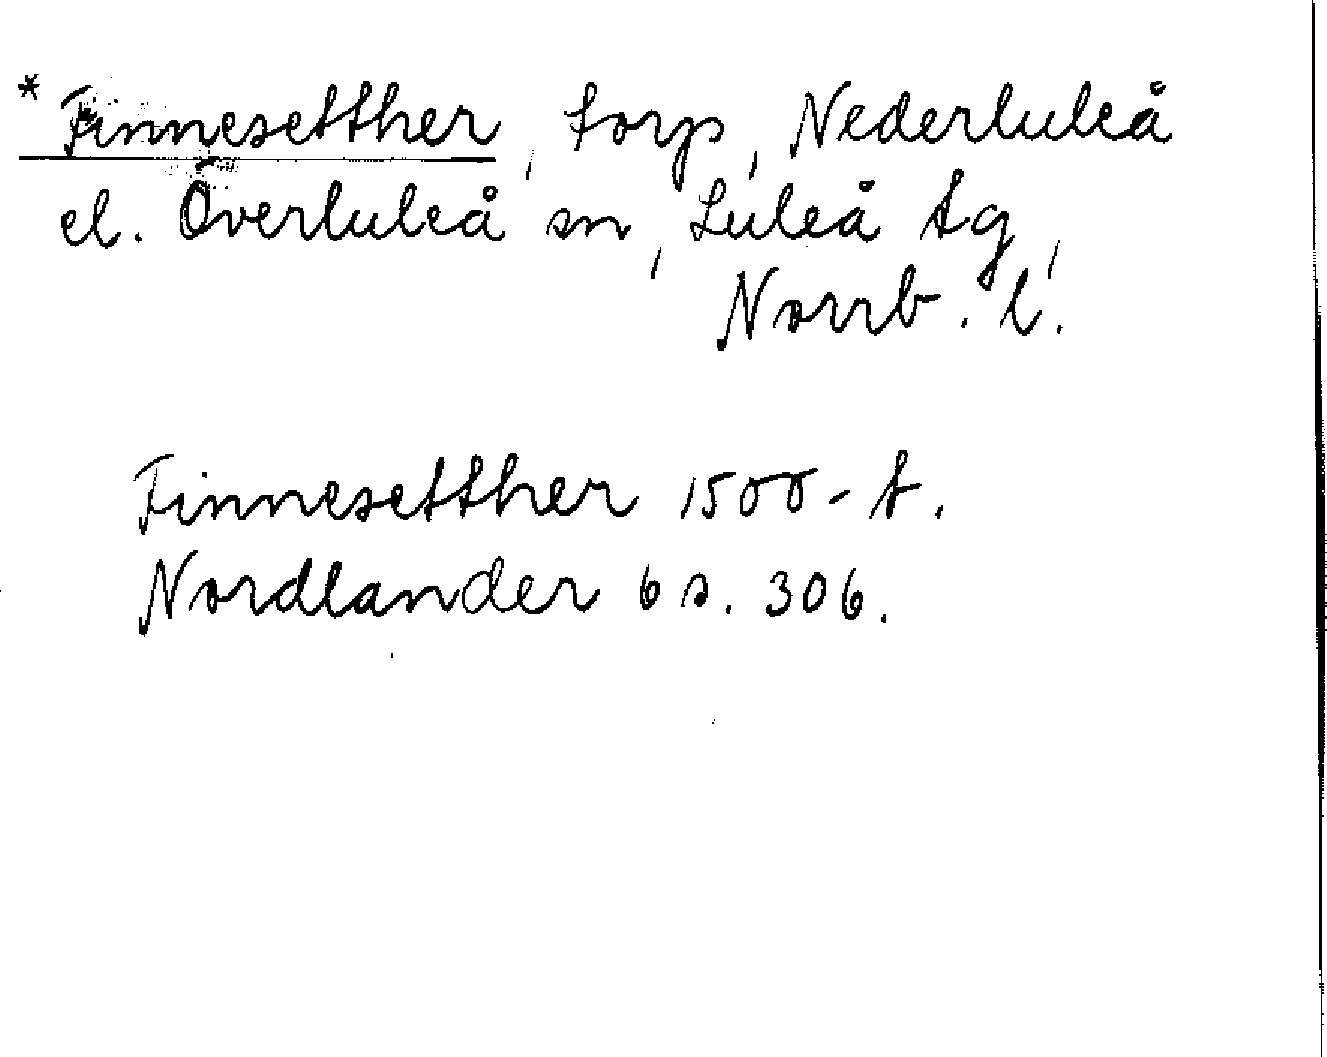 * Finnesetther, torp, Nederluleå
el. Överluleå sn, Luleå tg,
Norrb. l.
Finnesetther 1500-t.
Nordlander 6 s. 306.